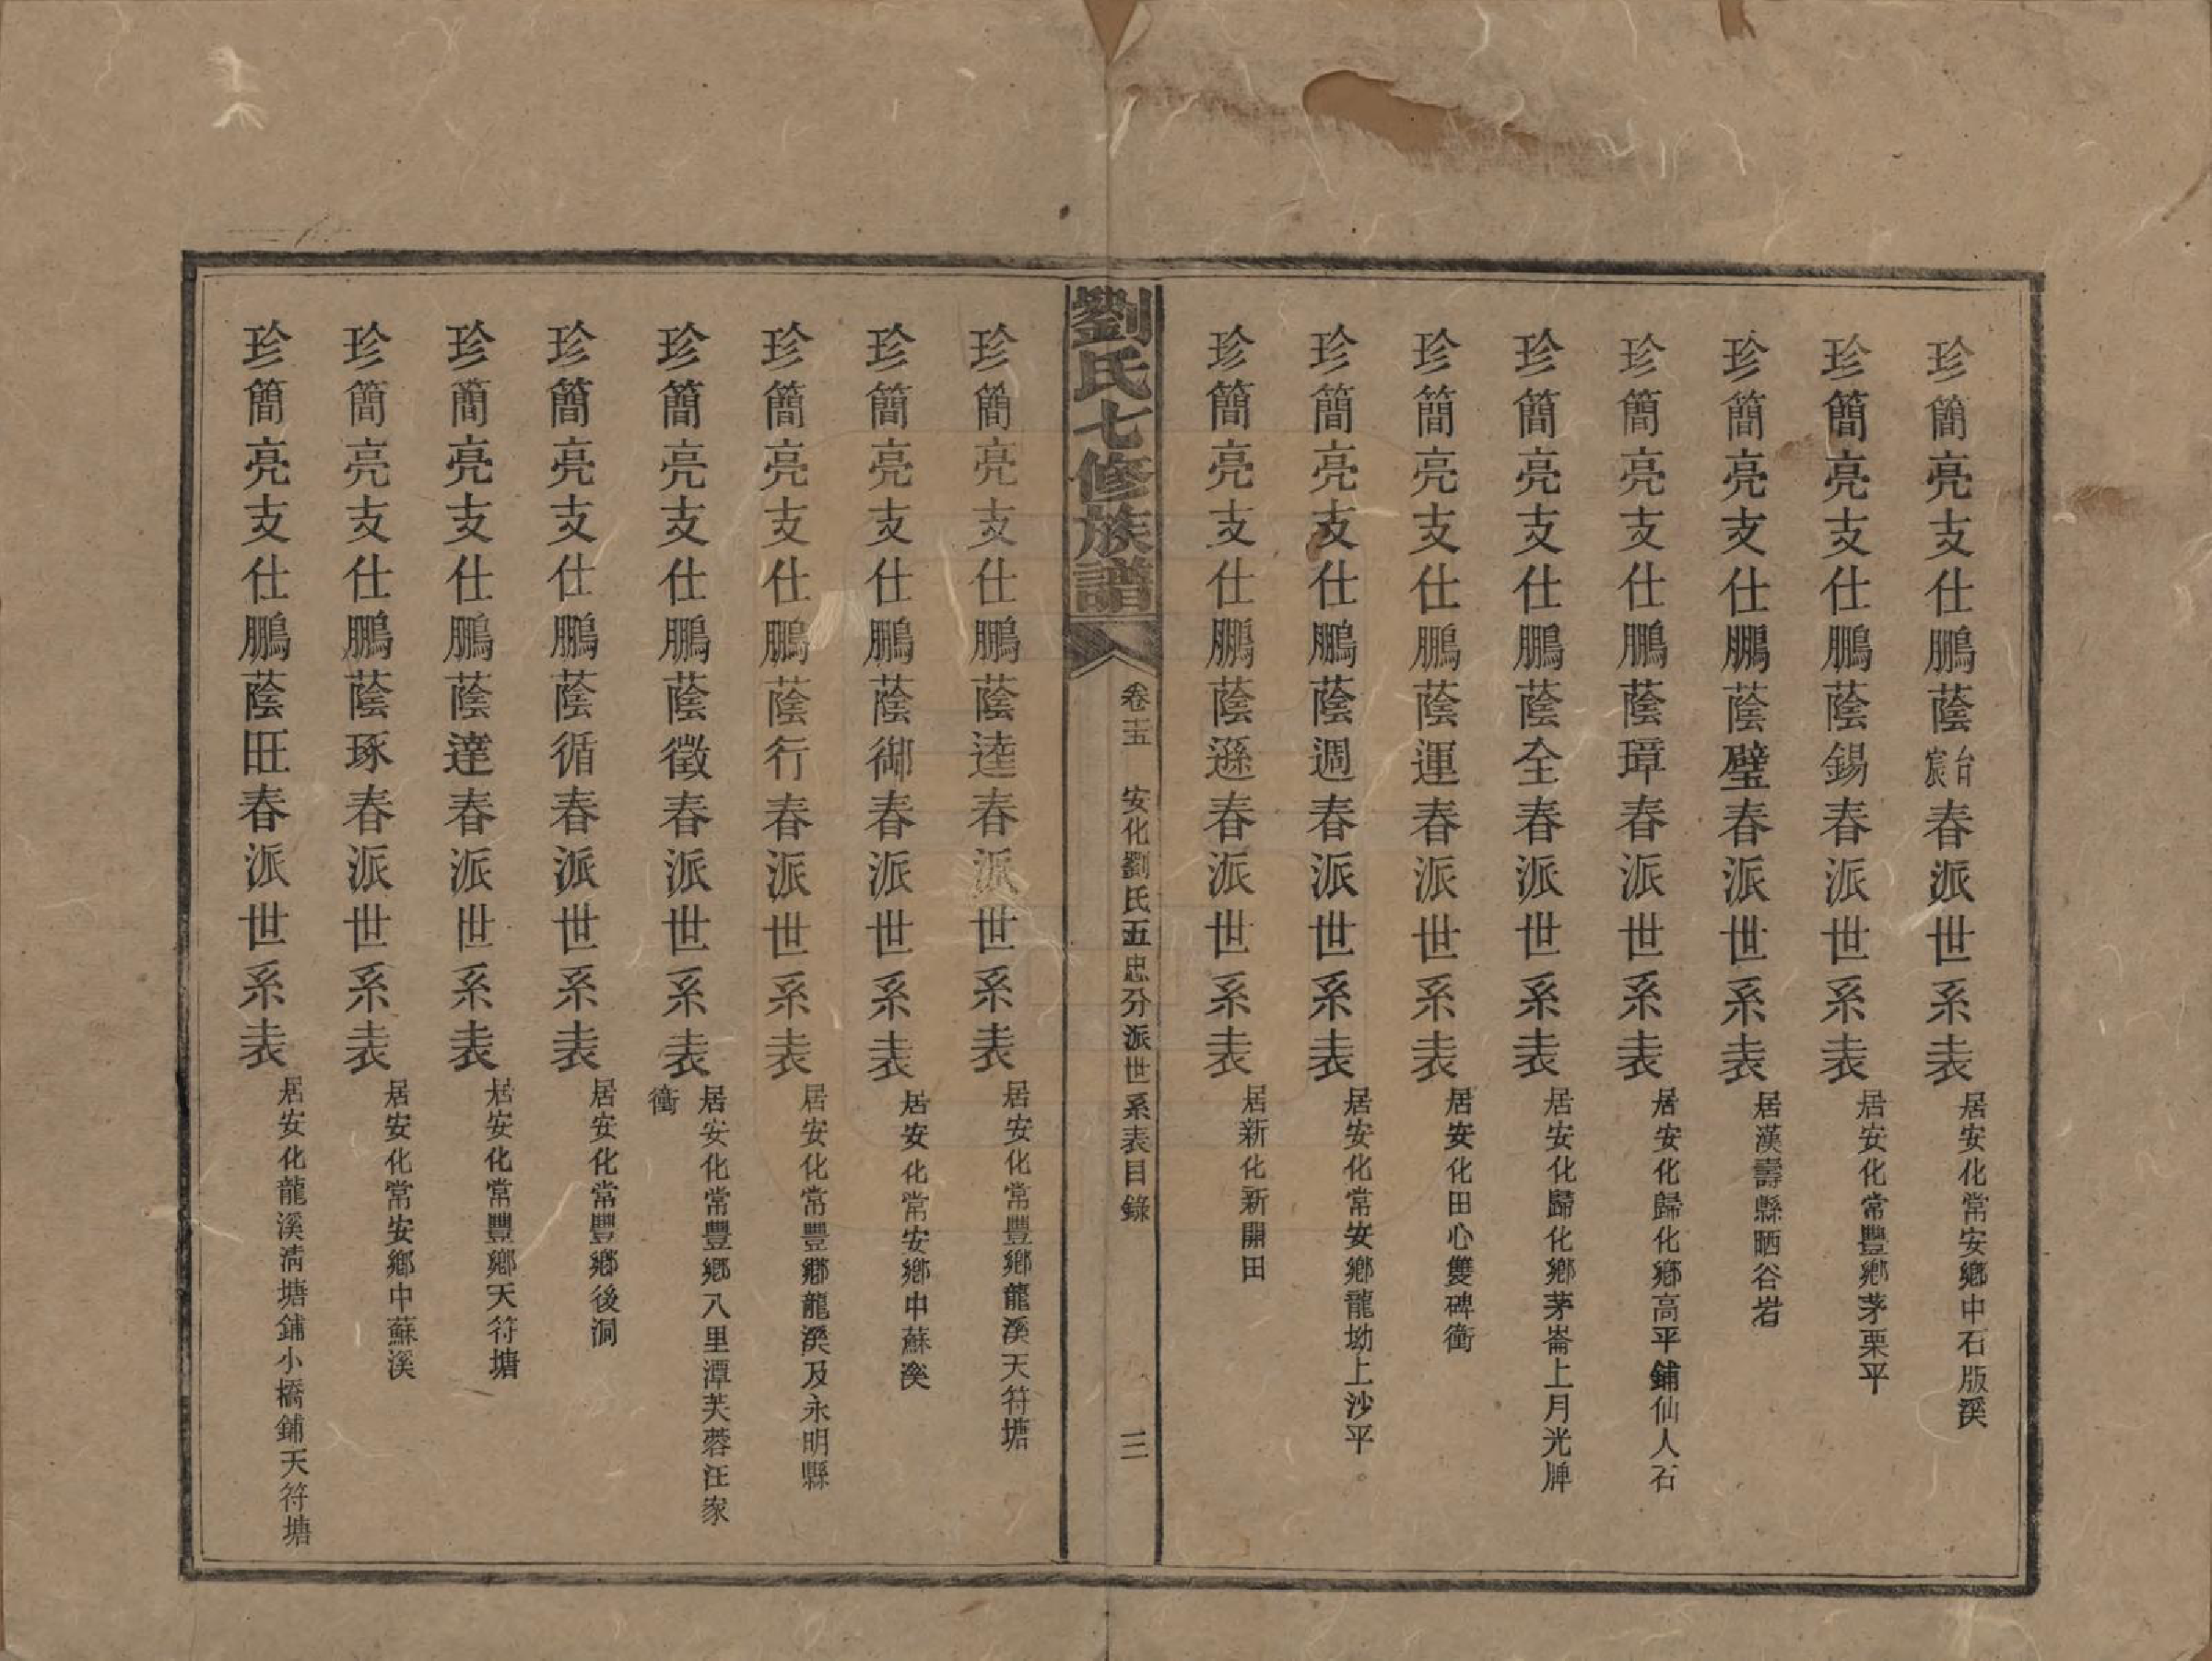 珍簡亮支仕鵬蔭台宸春派世系表 居安化常安鄉中石版溪
珍簡亮支仕鵬蔭錫春派世系表 居安化常豐鄉茅栗平
珍簡亮支仕鵬蔭璧春派世系表 居漢壽縣晒谷岩
珍簡亮支仕鵬蔭璋春派世系表 居安化歸化鄉高平鋪仙人石
珍簡亮支仕鵬蔭全春派世系表 居安化歸化鄉茅崙上月光牌
珍簡亮支仕鵬蔭運春派世系表 居安化田心雙碑衝
珍簡亮支仕鵬蔭週春派世系表 居安化常安鄉龍坳上沙平
珍簡亮支仕鵬蔭遜春派世系表 居新化新開田
劉氏七修族譜 卷十五 安化劉氏五忠分派世系表目錄 三
珍簡亮支仕鵬蔭逵春派世系表 居安化常豐鄉龍溪天符塘
珍簡亮支仕鵬蔭御春派世系表 居安化常安鄉中蘇溪
珍簡亮支仕鵬蔭行春派世系表 居安化常豐鄉龍溪及永明縣
珍簡亮支仕鵬蔭徵春派世系表 居安化常豐鄉八里潭芙蓉汪家衝
珍簡亮支仕鵬蔭循春派世系表 居安化常豐鄉後洞
珍簡亮支仕鵬蔭達春派世系表 居安化常豐鄉天符塘
珍簡亮支仕鵬蔭琢春派世系表 居安化常安鄉中蘇溪
珍簡亮支仕鵬蔭旺春派世系表 居安化龍溪清塘鋪小橋鋪天符塘